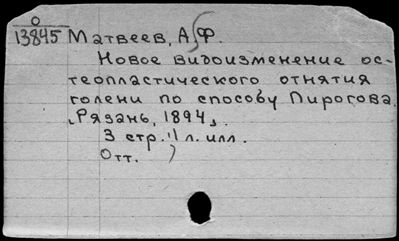 О
13845 Матвеев, А.Ф.
Новое видоизменение ос-
теопластического отнятия
голени по способу Пирогова.
[Рязань, 1894].
3 стр. 11 л. илл.
Отт.